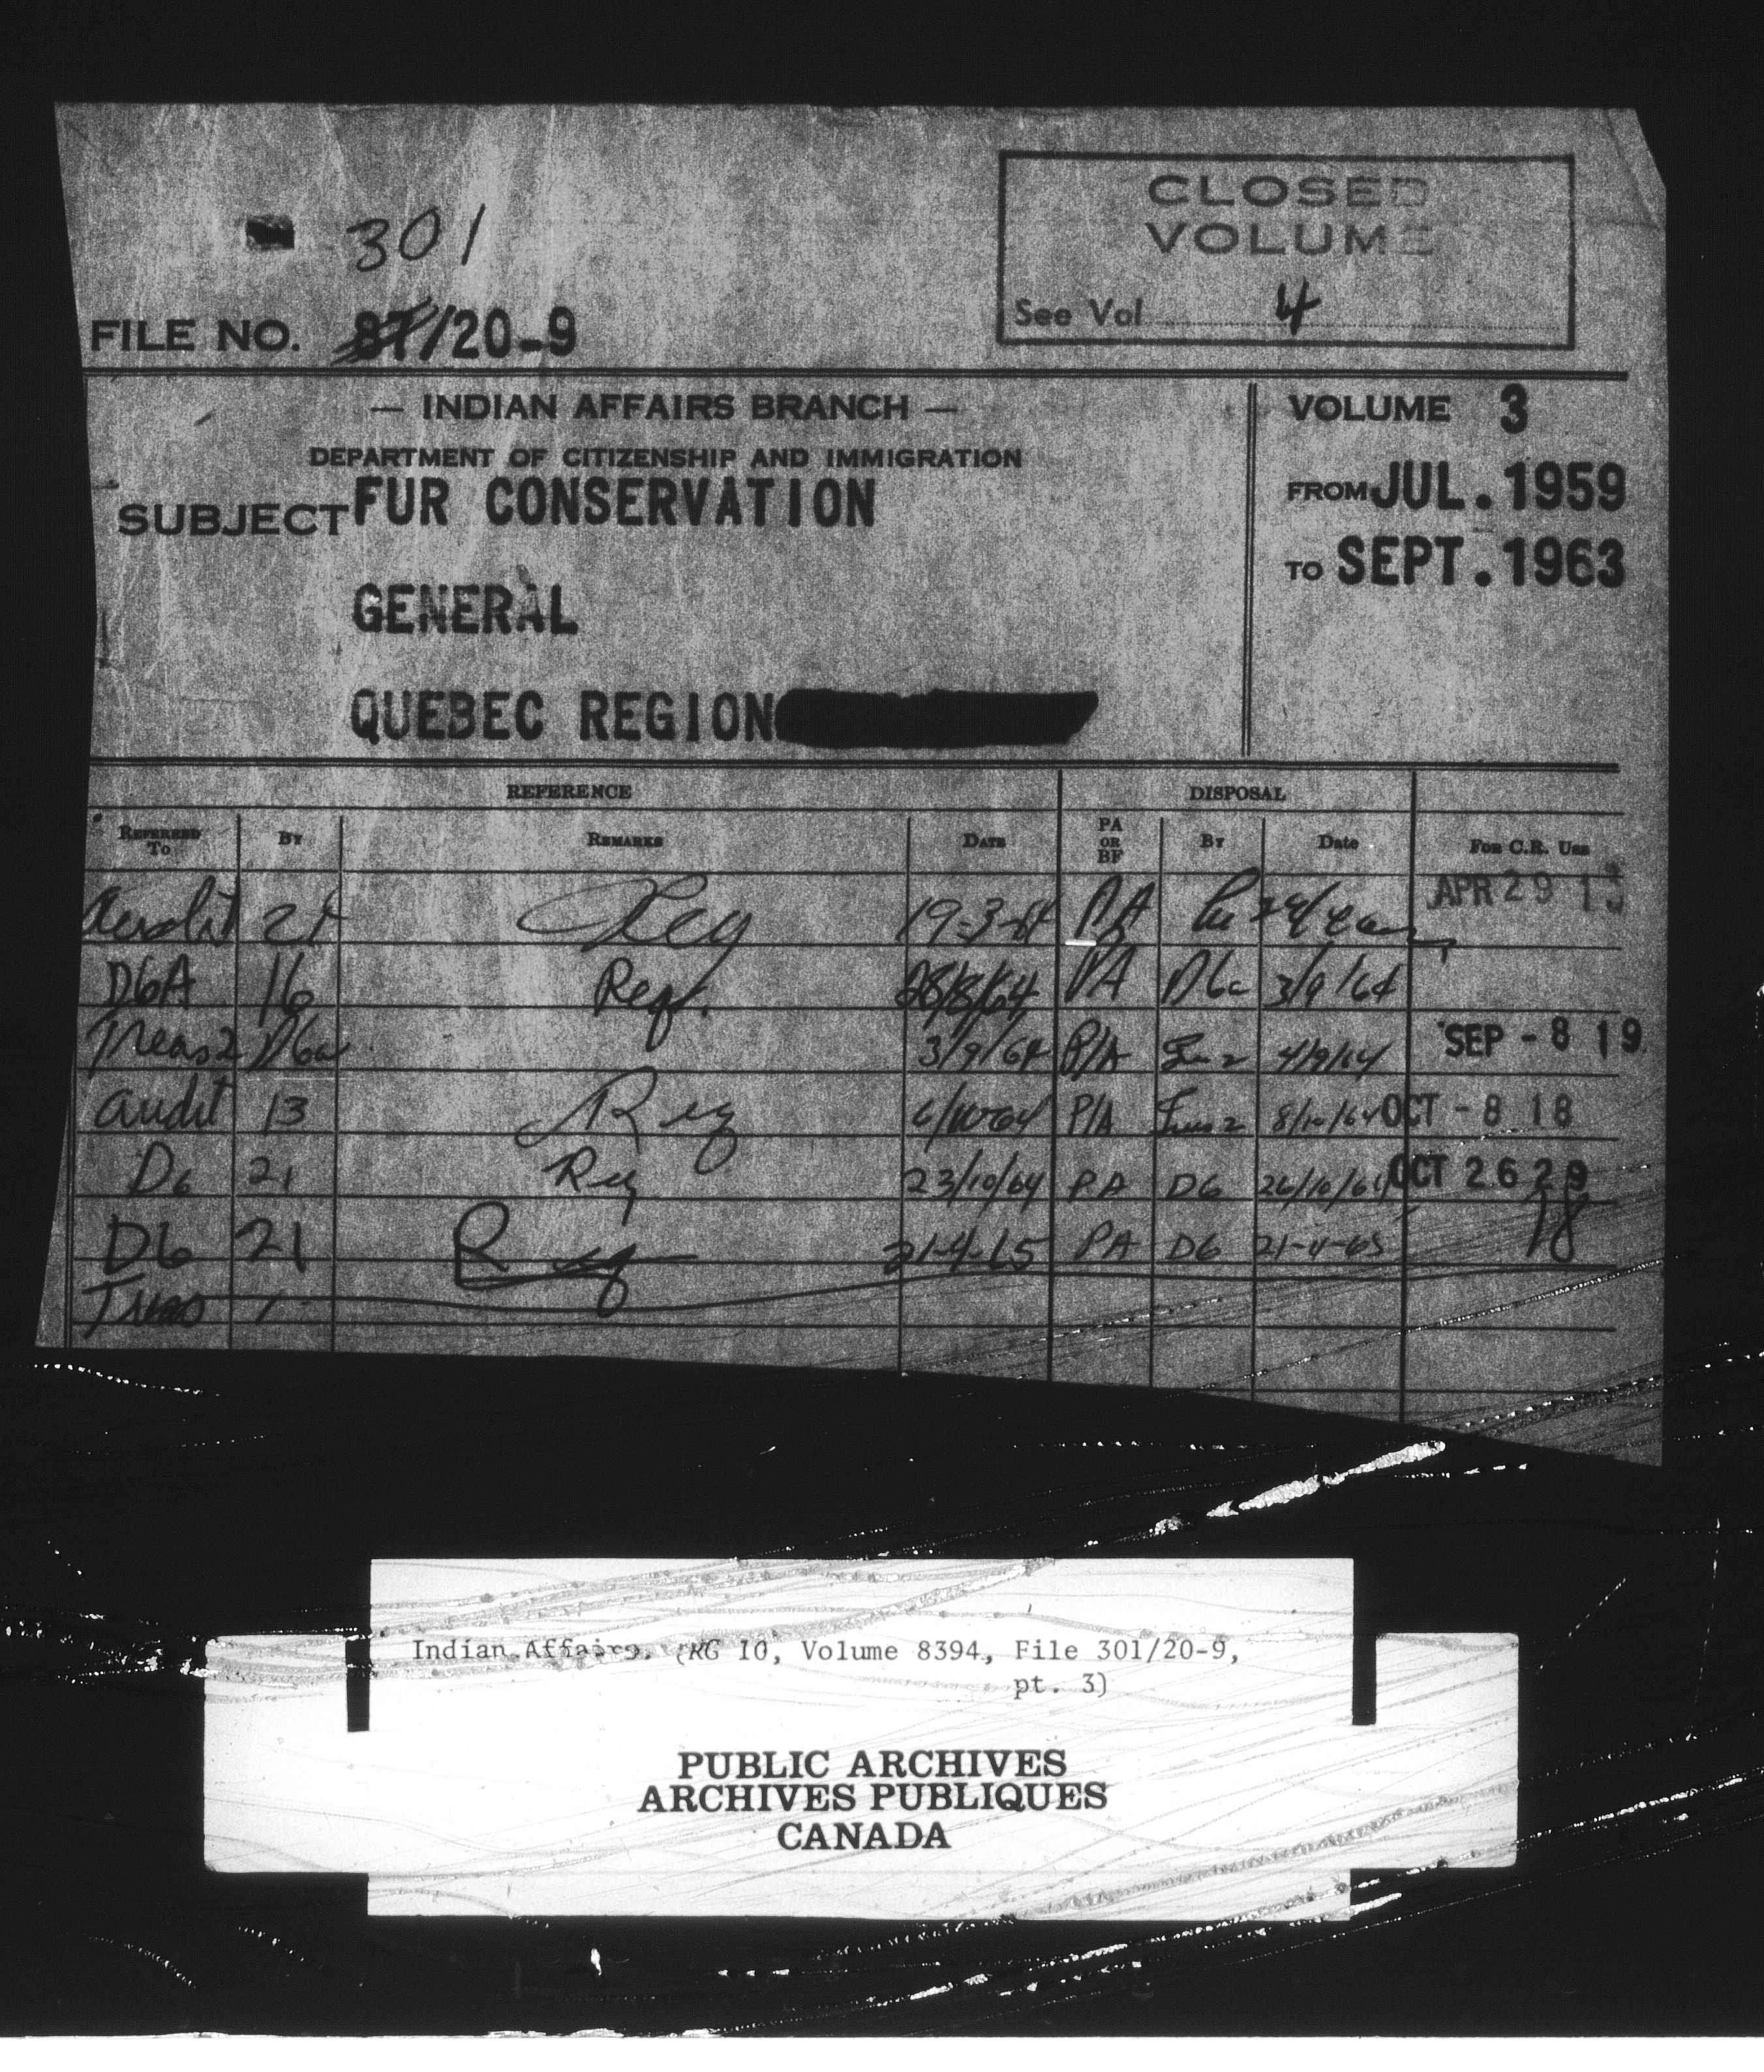 CLOSED
VOLUME
See Vol 4
301
FILE NO. 87/20-9
— INDIAN AFFAIRS BRANCH —
DEPARTMENT OF CITIZENSHIP AND IMMIGRATION
SUBJECT FUR CONSERVATION
GENERAL
QUEBEC REGION
VOLUME 3
FROM JUL. 1959
TO SEPT. 1963
REFERENCE DISPOSAL
REFERRED TO BY REMARKS DATE PA OR BF BY Date FOR C.R. USE
Audit 21 Req 19-3-64 PA APR 29
D6A 16 Req. 28/8/64 PA D6a 3/9/64
D6a 3/9/64 P/A 4/9/64 SEP - 8 19
audit 13 Req 6/10-64 P/A 8/10/64 OCT - 8 18
D6 21 Req 23/10/64 P.A D6 26/10/64 OCT 26 29
18
D6 21 Req 21-4-65 PA D6 21-4-65
Indian Affairs. (RG 10, Volume 8394, File 301/20-9,
pt. 3)
PUBLIC ARCHIVES
ARCHIVES PUBLIQUES
CANADA